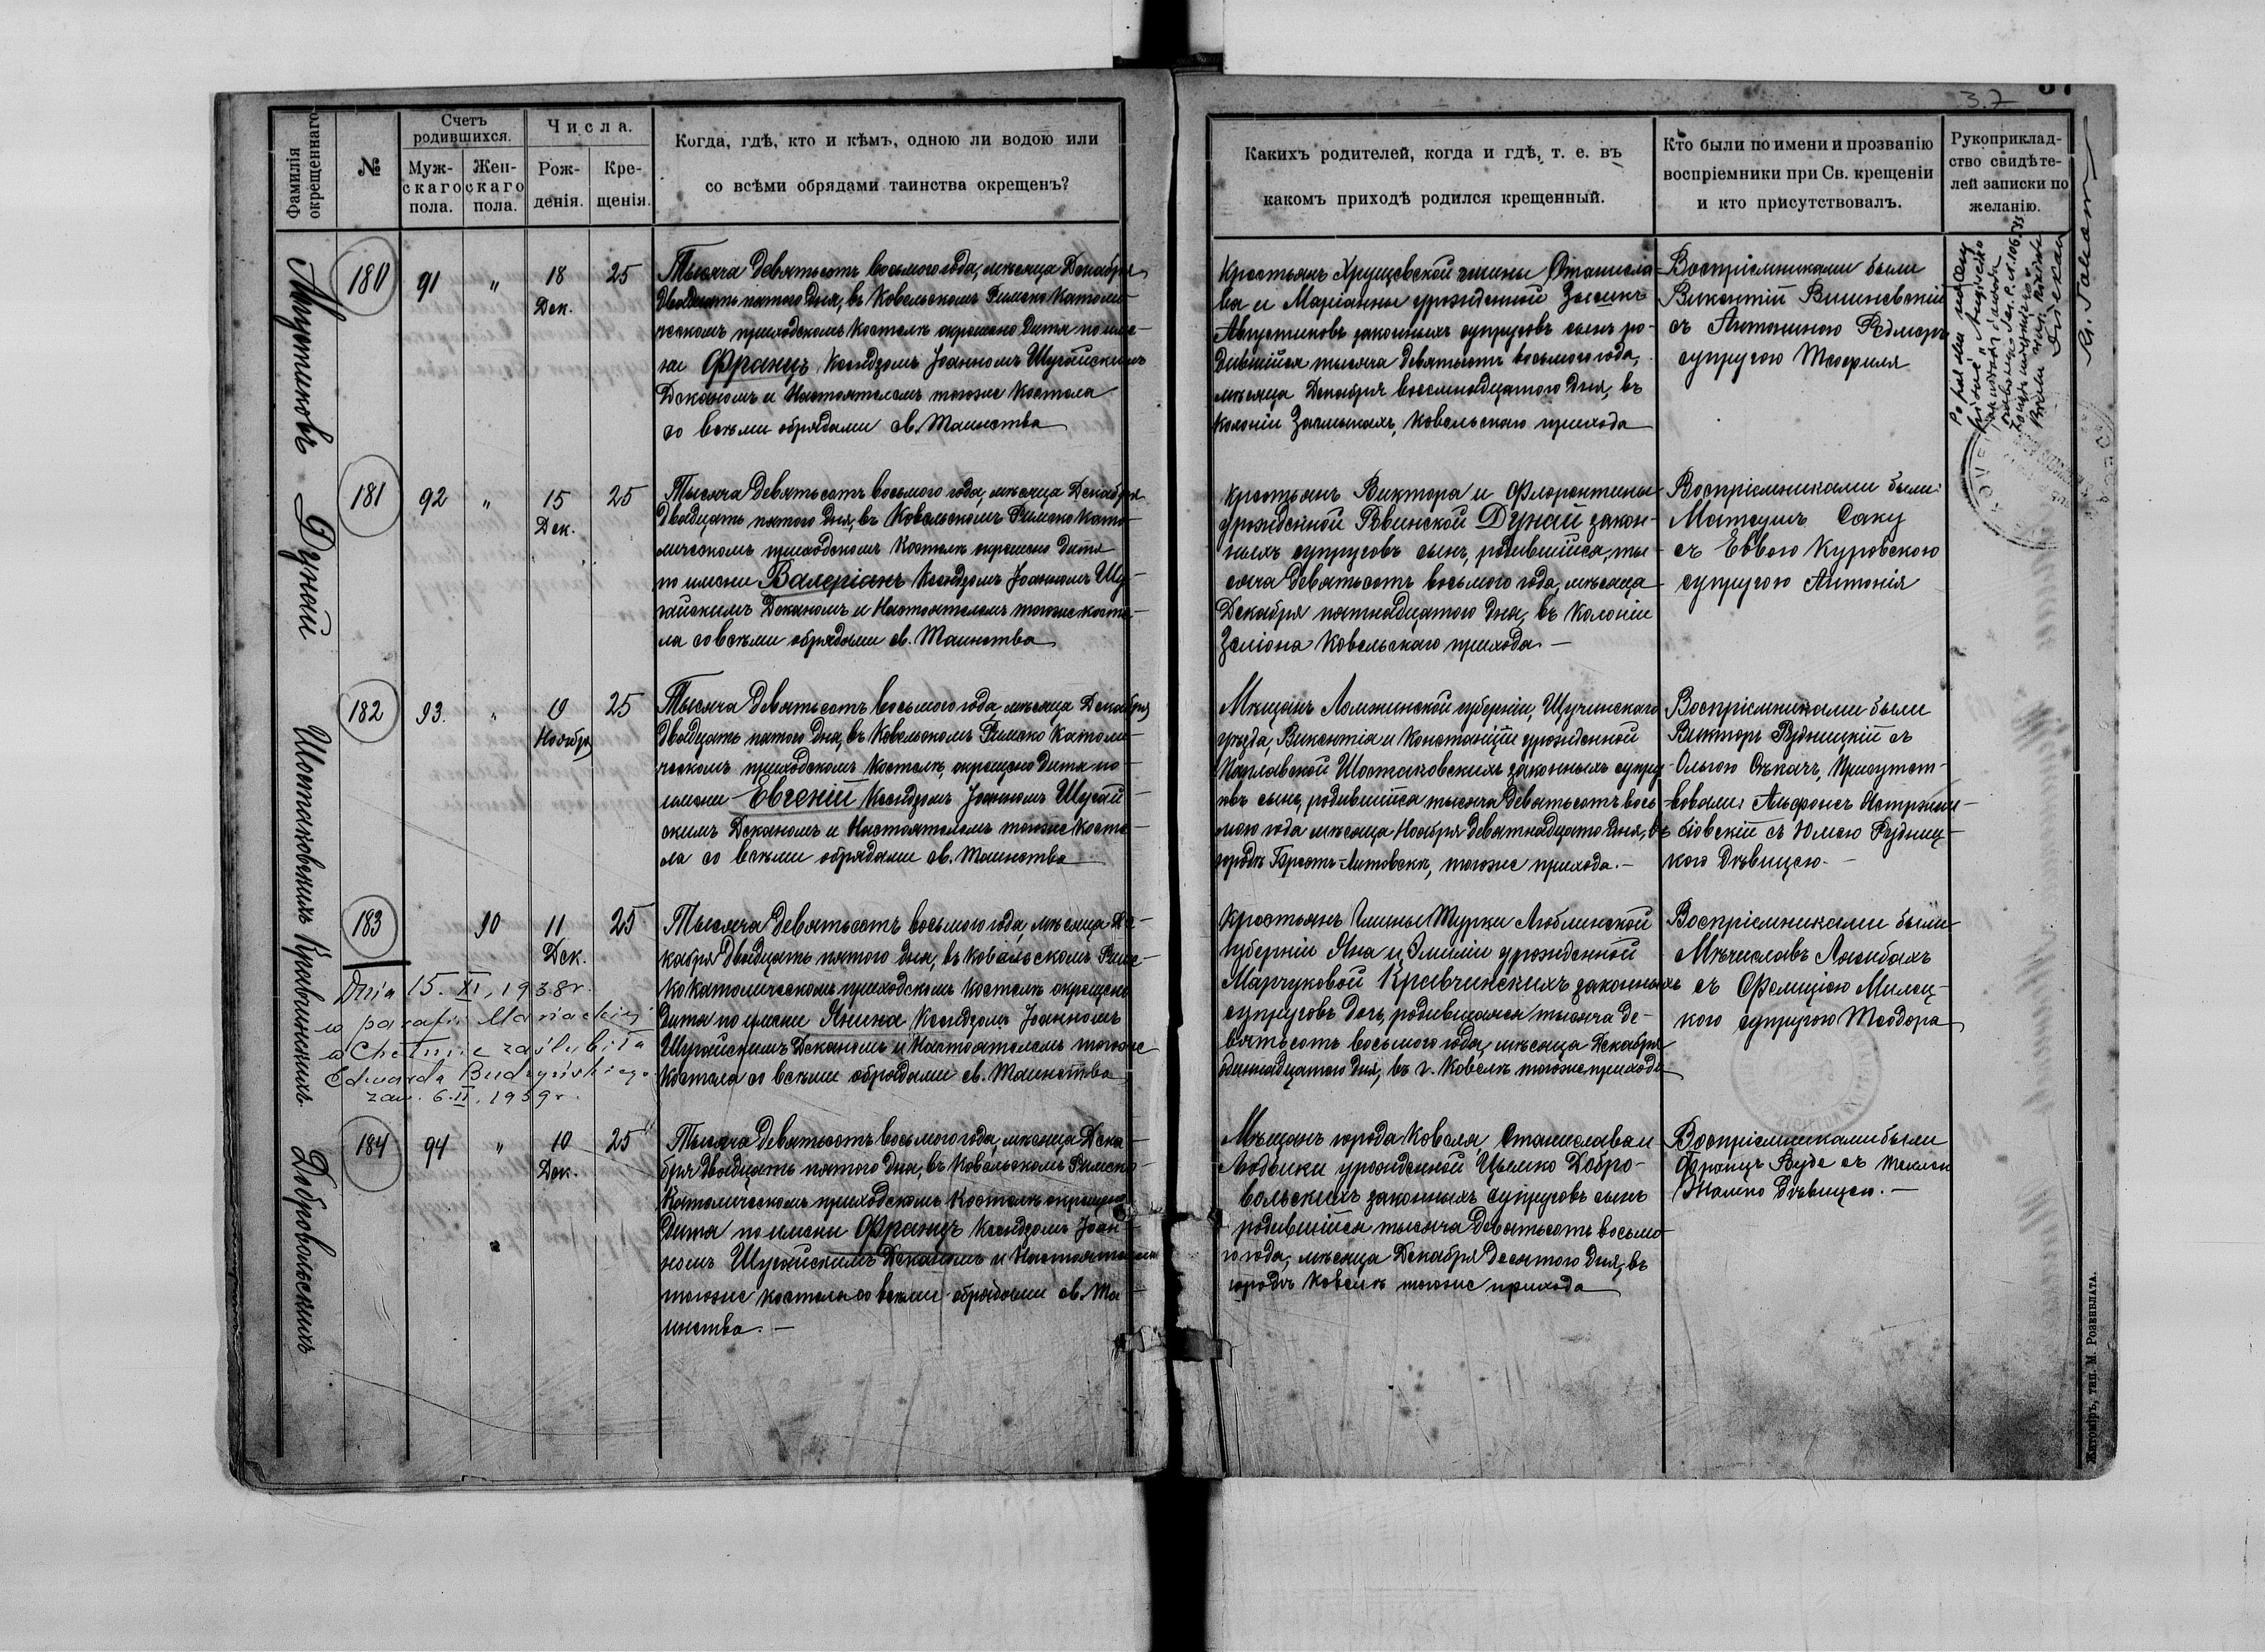 37
3.7
Фамилія окрещеннаго
№
Счетъ родившихся.
Муж-
скаго
пола.
Жен-
скаго
пола.
Числа.
Рож-
денія.
Кре-
щенія.
Когда, гдѣ, кто и кѣмъ, одною ли водою или
со всѣми обрядами таинства окрещенъ?
Августиновъ
180
91
"
18
Дек.
25
Тысяча девятьсотъ восьмого года, мѣсяца Декабря
двадцать пятого дня, въ Ковельскомъ Римско Католи-
ческомъ приходскомъ костелѣ окрещено дитя по име-
ни Францъ Ксендзомъ Іоанномъ Шугайскимъ
Деканомъ и Настоятелемъ тогоже костела
со всѣми обрядами св. Таинства
Дунай
181
92
"
15
Дек.
25
Тысяча девятьсотъ восьмого года, мѣсяца Декабря
двадцать пятого дня, въ Ковельскомъ Римско Като-
лическомъ приходскомъ костелѣ окрещено дитя
по имени Валеріанъ Ксендзомъ Іоанномъ Шу-
гайскимъ Деканомъ и Настоятелемъ тогоже косте-
ла со всѣми обрядами св. Таинства
Шостаковскихъ
182
93.
"
19
Ноября
25
Тысяча девятьсотъ восьмого года мѣсяца Декабря
двадцать пятого дня, въ Ковельскомъ Римско Католи-
ческомъ приходскомъ костелѣ, окрещено дитя по
имени Евгеній Ксендзомъ Іоанномъ Шугай-
скимъ Деканомъ и Настоятелемъ тогоже косте-
ла со всѣми обрядами св. Таинства
Кравчинскихъ
183
90
11
Дек.
25
Тысяча девятьсотъ восьмого года, мѣсяца Де-
кабря двадцать пятого дня, въ Ковельскомъ Римс-
ко католическомъ приходскомъ костелѣ окрещено
дитя по имени Янина Ксендзомъ Іоанномъ
Шугайскимъ Деканомъ и Настоятелемъ тогоже
костела со всѣми обрядами св. Таинства
Dnia 15. XI. 1938 r.
w parafii Mariackiej
w Chełmie zaślubiła
Edwarda Budzyńskiego
zaw. 6.II.1939 r.
Добровольскихъ
184
94
"
10
Дек.
25
Тысяча девятьсотъ восьмого года, мѣсяца Дека-
бря двадцать пятого дня, въ Ковельскомъ Римско-
Католическомъ приходскомъ костелѣ окрещено
дитя по имени Францъ Ксендзомъ Іоан-
номъ Шугайскимъ Деканомъ и Настоятелемъ
тогоже костела со всѣми обрядами св. Та-
инства. —
Какихъ родителей, когда и гдѣ, т. е. въ
какомъ приходѣ родился крещенный.
Кто были по имени и прозванію
воспріемники при Св. крещеніи
и кто присутствовалъ.
Рукоприклад-
ство свидѣте-
лей записки по
желанію.
Крестьянъ Хрущевской гмины Станисла-
ва и Маріанны урожденной
Августиновъ законныхъ супруговъ сынъ ро-
дившійся тысяча девятьсотъ восьмого года,
мѣсяца Декабря восемнадцатого дня, въ
колоніи Ковельскаго прихода
Воспріемниками были
Викентій Вишневскій
съ Антониною
супругою Теофиля
Крестьянъ Виктора и Флорентины
урожденной Ровинской Дунай закон-
ныхъ супруговъ сынъ, родившійся, ты-
сяча девятьсотъ восьмого года, мѣсяца
Декабря пятнадцатого дня, въ колоніи
Зеліона Ковельскаго прихода. —
Воспріемниками были:
Матеушъ Саку
съ Еввою Куровскою
супругою Антонія
Мѣщанъ Ломжинской губерніи, Щучинскаго
уѣзда, Викентія и Констанціи урожденной
Шостаковскихъ законныхъ супру-
говъ сынъ, родившійся тысяча девятьсотъ вось-
мого года мѣсяца Ноября девятнадцатого дня, въ
городѣ Брестъ-Литовскѣ, тогоже прихода. —
Воспріемниками были
Викторъ Рудницкій съ
Ольгою Присутст-
вовали: Альфонсъ
съ Юліею Рудниц-
кого дѣвицею. —
Крестьянъ Гмины Турки Люблинской
губерніи Яна и Эмиліи урожденной
Марчуковой Кравчинскихъ законныхъ
супруговъ дочь, родившаяся тысяча де-
вятьсотъ восьмого года, мѣсяца Декабря
одинадцатого дня, въ г. Ковелѣ тогоже прихода
Воспріемниками были
Мѣчиславъ
съ Фелиціею Милец-
кого супругою Теодора
Мѣщанъ города Ковеля, Станислава и
Людвики урожденной Добро-
вольскихъ законныхъ супруговъ сынъ
родившійся тысяча девятьсотъ восьмо-
го года, мѣсяца Декабря десятого дня, въ
городѣ Ковелѣ тогоже прихода
Воспріемниками были
Францъ съ Теклею
дѣвицею. —
Житоміръ, тип. М. Розенблата.